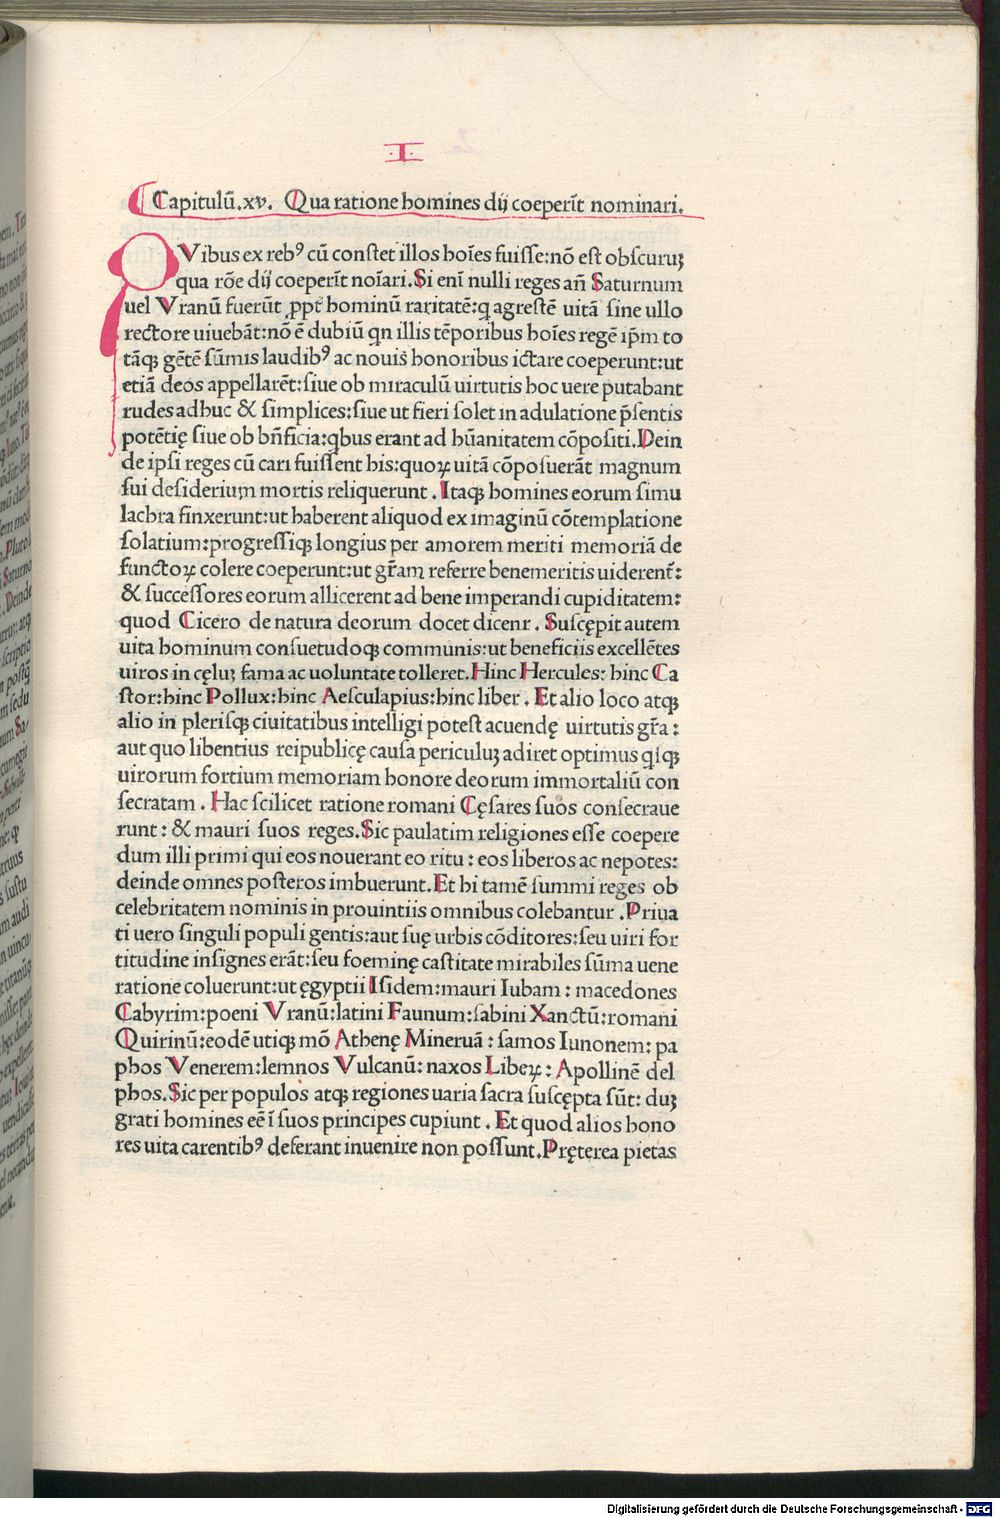 ·I·
Capitulũ.xv. Qua ratione homines dij coeperĩt nominari.
QVibus ex rebꝰ cũ conſtet illos hoĩes fuiſſe:nõ eſt obſcuruꝫ
qua rõe dij coeperĩt noĩari.Si enĩ nulli reges añ Saturnum
uel Vranũ fuerũt ꝓpt̃ hominũ raritatẽ:q agreſtẽ uitã ſine ullo
rectore uiuebãt:nõ ẽ dubiũ qn illis tẽporibus hoĩes regẽ ip̃m to
tãqꝫ gẽtẽ ſũmis laudibꝰ ac nouis honoribus ictare coeperunt:ut
etiã deos appellarẽt:ſiue ob miraculũ uirtutis hoc uere putabant
rudes adhuc & ſimplices:ſiue ut fieri ſolet in adulatione p̃ſentis
potẽtię ſiue ob bñficia:qbus erant ad hũanitatem cõpoſiti.Dein
de ipſi reges cũ cari fuiſſent his:quoꝝ uitã cõpoſuerãt magnum
ſui deſiderium mortis reliquerunt . Itaqꝫ homines eorum ſimu
lachra finxerunt:ut haberent aliquod ex imaginũ cõtemplatione
ſolatium:progreſſiqꝫ longius per amorem meriti memoriã de
functoꝝ colere coeperunt:ut gr̃am referre benemeritis uiderent̃:
& ſucceſſores eorum allicerent ad bene imperandi cupiditatem:
quod Cicero de natura deorum docet dicenr . Suſcępit autem
uita hominum conſuetudoqꝫ communis:ut beneficiis excellẽtes
uiros in cęluꝫ fama ac uoluntate tolleret.Hinc Hercules: hinc Ca
ſtor:hinc Pollux:hinc Aeſculapius:hinc liber . Et alio loco atqꝫ
alio in pleriſqꝫ ciuitatibus intelligi poteſt acuendę uirtutis gr̃a :
aut quo libentius reipublicę cauſa periculuꝫ adiret optimus qiqꝫ
uirorum fortium memoriam honore deorum immortaliũ con
ſecratam . Hac ſcilicet ratione romani Cęſares ſuos conſecraue
runt : & mauri ſuos reges.Sic paulatim religiones eſſe coepere
dum illi primi qui eos nouerant eo ritu : eos liberos ac nepotes:
deinde omnes poſteros imbuerunt.Et hi tamẽ ſummi reges ob
celebritatem nominis in prouintiis omnibus colebantur .Priua
ti uero ſinguli populi gentis:aut ſuę urbis cõditores:ſeu uiri for
titudine inſignes erãt:ſeu foeminę caſtitate mirabiles ſũma uene
ratione coluerunt:ut ęgyptii Iſidem:mauri Iubam : macedones
Cabyrim:poeni Vranũ:latini Faunum:ſabini Xanctũ:romani
Quirinũ:eodẽ utiqꝫ mõ Athenę Mineruã : ſamos Iunonem: pa
phos Venerem:lemnos Vulcanũ: naxos Libeꝝ : Apollinẽ del
phos.Sic per populos atqꝫ regiones uaria ſacra ſuſcępta ſũt: duꝫ
grati homines eẽ ĩ ſuos principes cupiunt . Et quod alios hono
res uita carentibꝰ deferant inuenire non poſſunt.Pręterea pietas
Digitalisierung gefördert durch die Deutsche Forschungsgemeinschaft - DFG